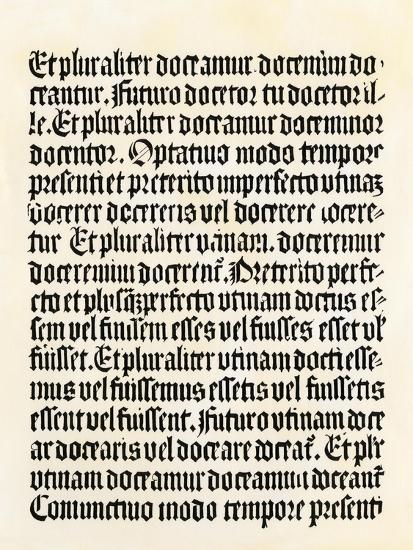 Et pluraliter doceamur docemini do-
ceantur. Futuro docetor tu docetor il-
le. Et pluraliter doceamur doceminor
docentor. Optatiuo modo tempore
presenti et preterito imperfecto vtinaz
docerer docereris vel docerere docere-
tur Et pluraliter vtinam. doceremur
doceremini docerent᷑. Preterito perfe-
cto et plusq̃zperfecto vtinam doctus es-
sem vel fuissem esses vel fuisses esset vl
fuisset. Et pluraliter vtinam docti esse-
mus vel fuissemus essetis vel fuissetis
essent vel fuissent. Futuro vtinam doce
ar docearis vel doceare doceat᷑. Et plr
vtinam doceamur doceamini doceant᷑
Coniunctiuo modo tempore presenti